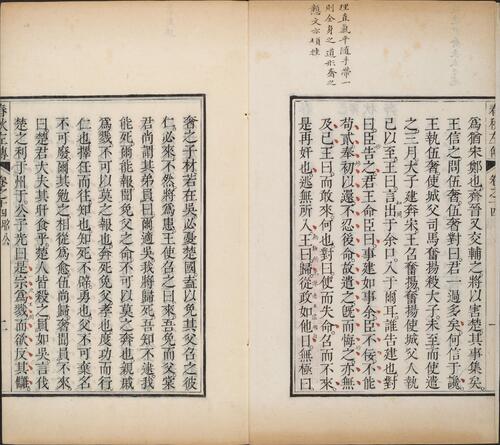 理直氣平隨手帶一
則全身之道形奢之
爲猶宋鄭也齊晉又交輔之將以害楚其事集矣
王信之問伍奢伍奢對曰君一過多矣何信于讒
王執伍奢使城父司馬奮揚殺大子未至而使遣
之三月大子建奔宋王召奮揚奮揚使城父人執
己以至王曰言出于余口入于爾耳誰告建也對
曰臣告之君王命臣曰事建如事余臣不佞不能
苟貳奉初以還不忍後命故遣之旣而悔之亦無
及已王曰而敢來何也對曰使而失命召而不來
是再奸也逃無所入王曰歸從政如他日無極曰
奢之子材若在吳必憂楚國盍以免其父召之彼
仁必來不然將爲患王使召之曰來吾免而父棠
君尚謂其弟員曰爾適吳我將歸死吾知不逮我
能死爾能報聞免父之命不可以莫之奔也親戚
爲戮不可以莫之報也奔死免父孝也度功而行
仁也擇任而往知也知死不辟勇也父不可棄名
不可廢爾其勉之相從爲愈伍尚歸奢聞員不來
曰楚君大夫其旰食乎楚人皆殺之員如吳言伐
楚之利于州于公子光曰是宗爲戮而欲反其讎
春秋左傳 卷之十四 昭公 二